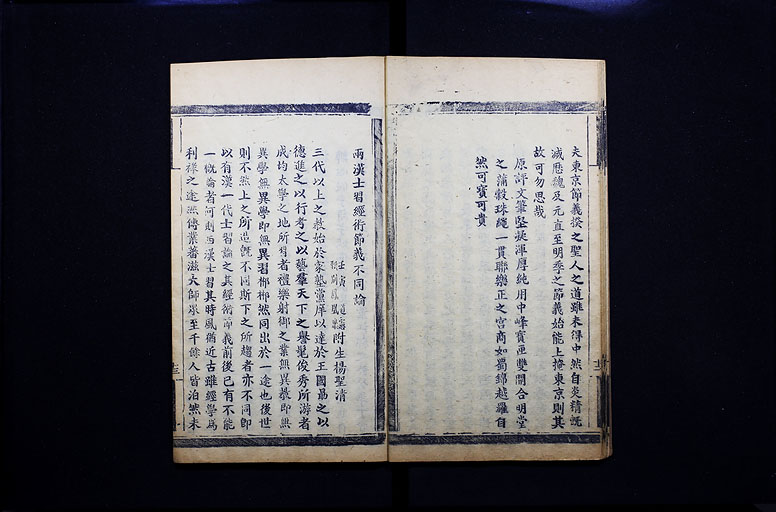 夫東京節義揆之聖人之道雖未得中然自炎精既
滅歷魏及元直至明季之節義始能上掩東京則其
故可勿思哉
原評文筆堅挺渾厚純用中峰賓匣雙開合明堂
之蒲穀珠繩一貫聯樂正之宮商如蜀錦越羅自
然可寶可貴
兩漢士習經術節義不同論
附生楊聖清
三代以上之教始於家塾黨庠以達於王國勗之以
德進之以行考之以藝羣天下之譽髦俊秀所游者
成均太學之地所習者禮樂射御之業無異教即無
異學無異學即無異習彬彬然同出於一途也後世
則不然上之所造既不同斯下之所趨者亦不同即
以有漢一代士習論之其經術節義前後已有不能
一概論者何則西漢士習其時風猶近古雖經學為
利祿之途然傳業著滋大師承至千餘人皆泊然未